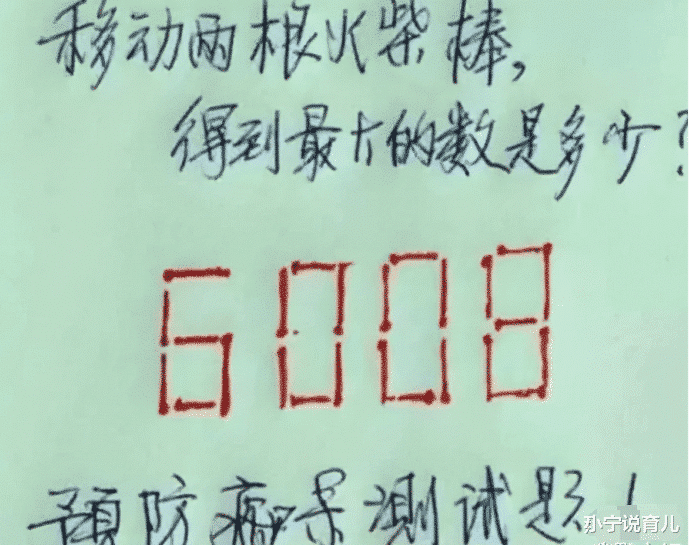 移动两根火柴棒,
得到最大的数是多少?
6008
预防痴呆测试题!
小宁说育儿